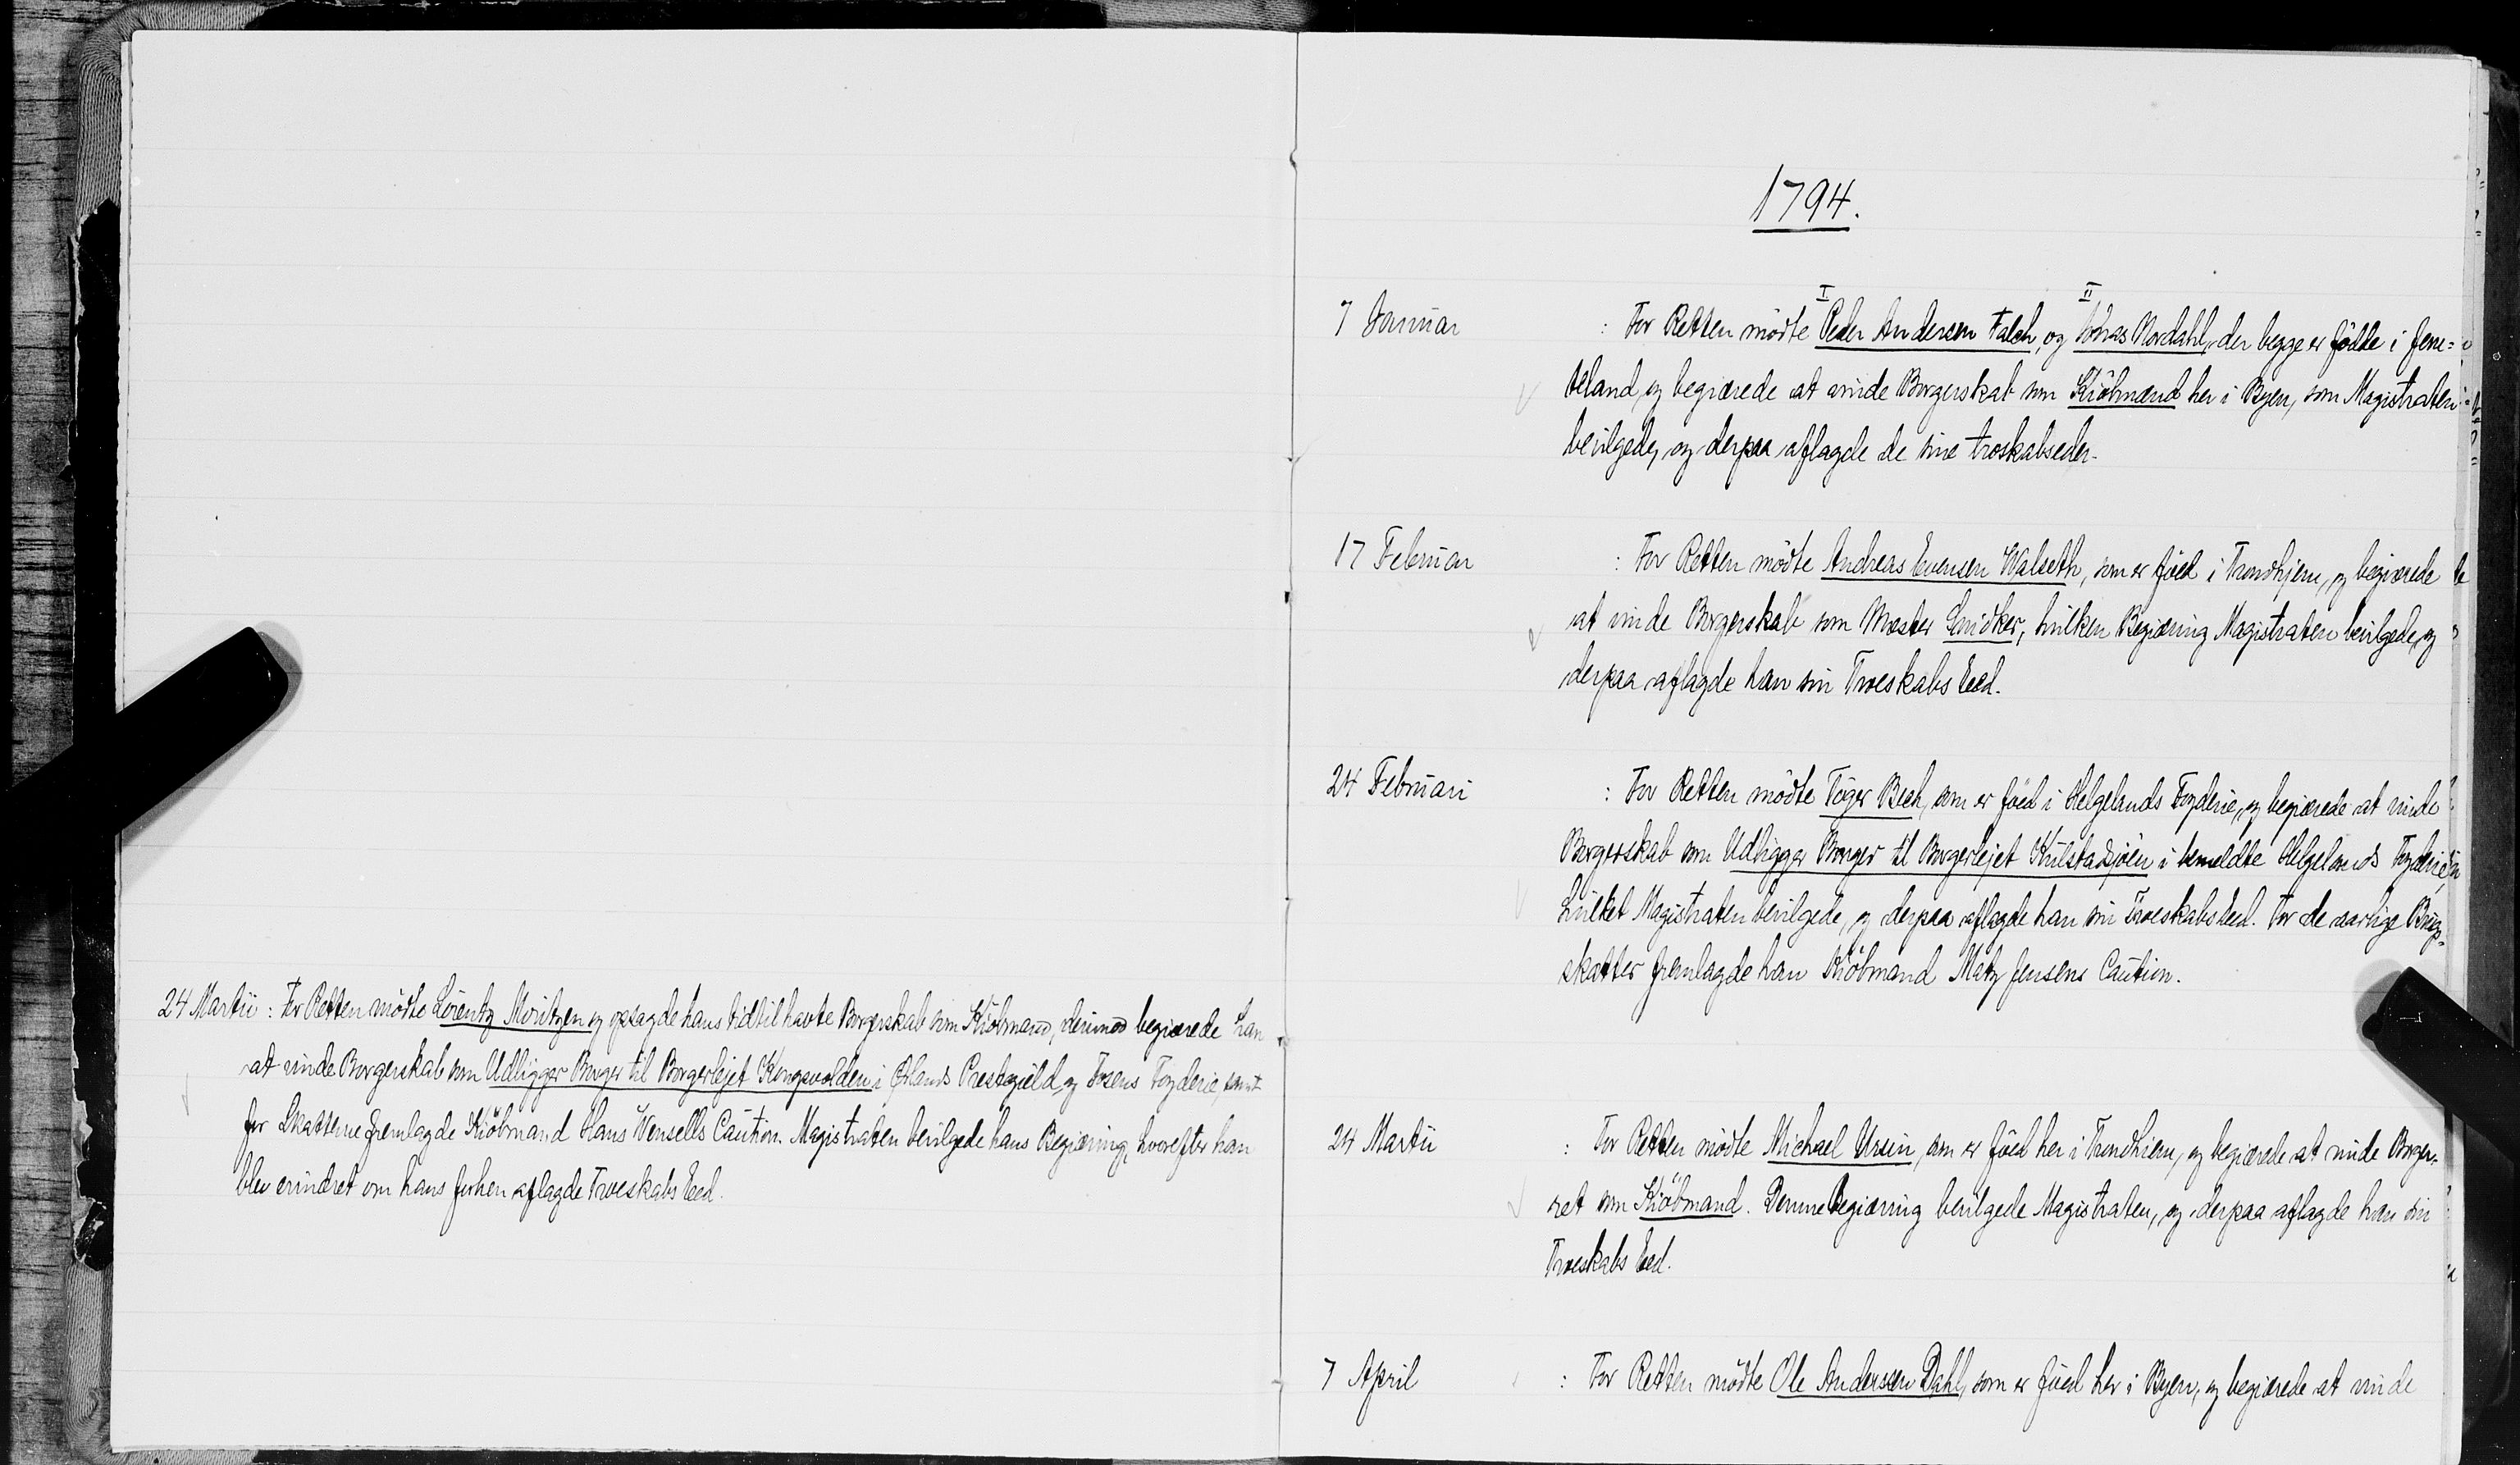 24 Martii : For Retten mödte Lorentz Moritzen og opsagde hans hidtil havte Borgerskab som Kiöbmand, derimod begiærede han
at vinde Borgerskab som Udligger Borger til Borgerlejet Kongsvolden i Ørlands Prestegield og Fosens Fogderie, samt
for Skatterne fremlagde Kiöbmand Hans Wensells Caution. Magistraten bevilgede hans Begiæring, hvorefter han
blev erindret om hans forhen aflagde Troeskabs Eed.
1794.
I II
7 Januar : For Retten mödte Peder Andersen Falch, og Jonas Nordahl, der begge er födde i Jem=
teland, og begiærede at vinde Borgerskab som Kiöbmænd her i Byen, som Magistraten
bevilgede, og derpaa aflagde de sine troskabseder.
17 Februar : For Retten mödte Andreas Evensen Walseth, som er föed i Trondhjem, og begiærede
at vinde Borgerskab som Mester Snidker, hvilken Begiæring Magistraten bevilgede, og
derpaa aflagde han sin Troeskabs Eed.
24 Februari : For Retten mödte Töger Bech, som er föed i Helgelands Fogderie, og begiærede at vinde
Borgerskab som Udligger Borger til Borgerlejet Kulstadsjöen i bemeldte Helgelands Fogderie,
hvilket Magistraten bevilgede, og derpaa aflagde han sin Troeskabs Eed. For de aarlige Byes
skatter fremlagde han Kiöbmand Matz Jensens Caution.
24 Martii : For Retten mödte Michael Ursin, som er föed her i Trondhiem, og begiærede at vinde Borger=
ret som Kiöbmand. Denne begiæring bevilgede Magistraten, og derpaa aflagde han sin
Troeskabs Eed.
7 April : For Retten mödte Ole Anderssen Dahl, som er föed her i Byen, og begiærede at vinde